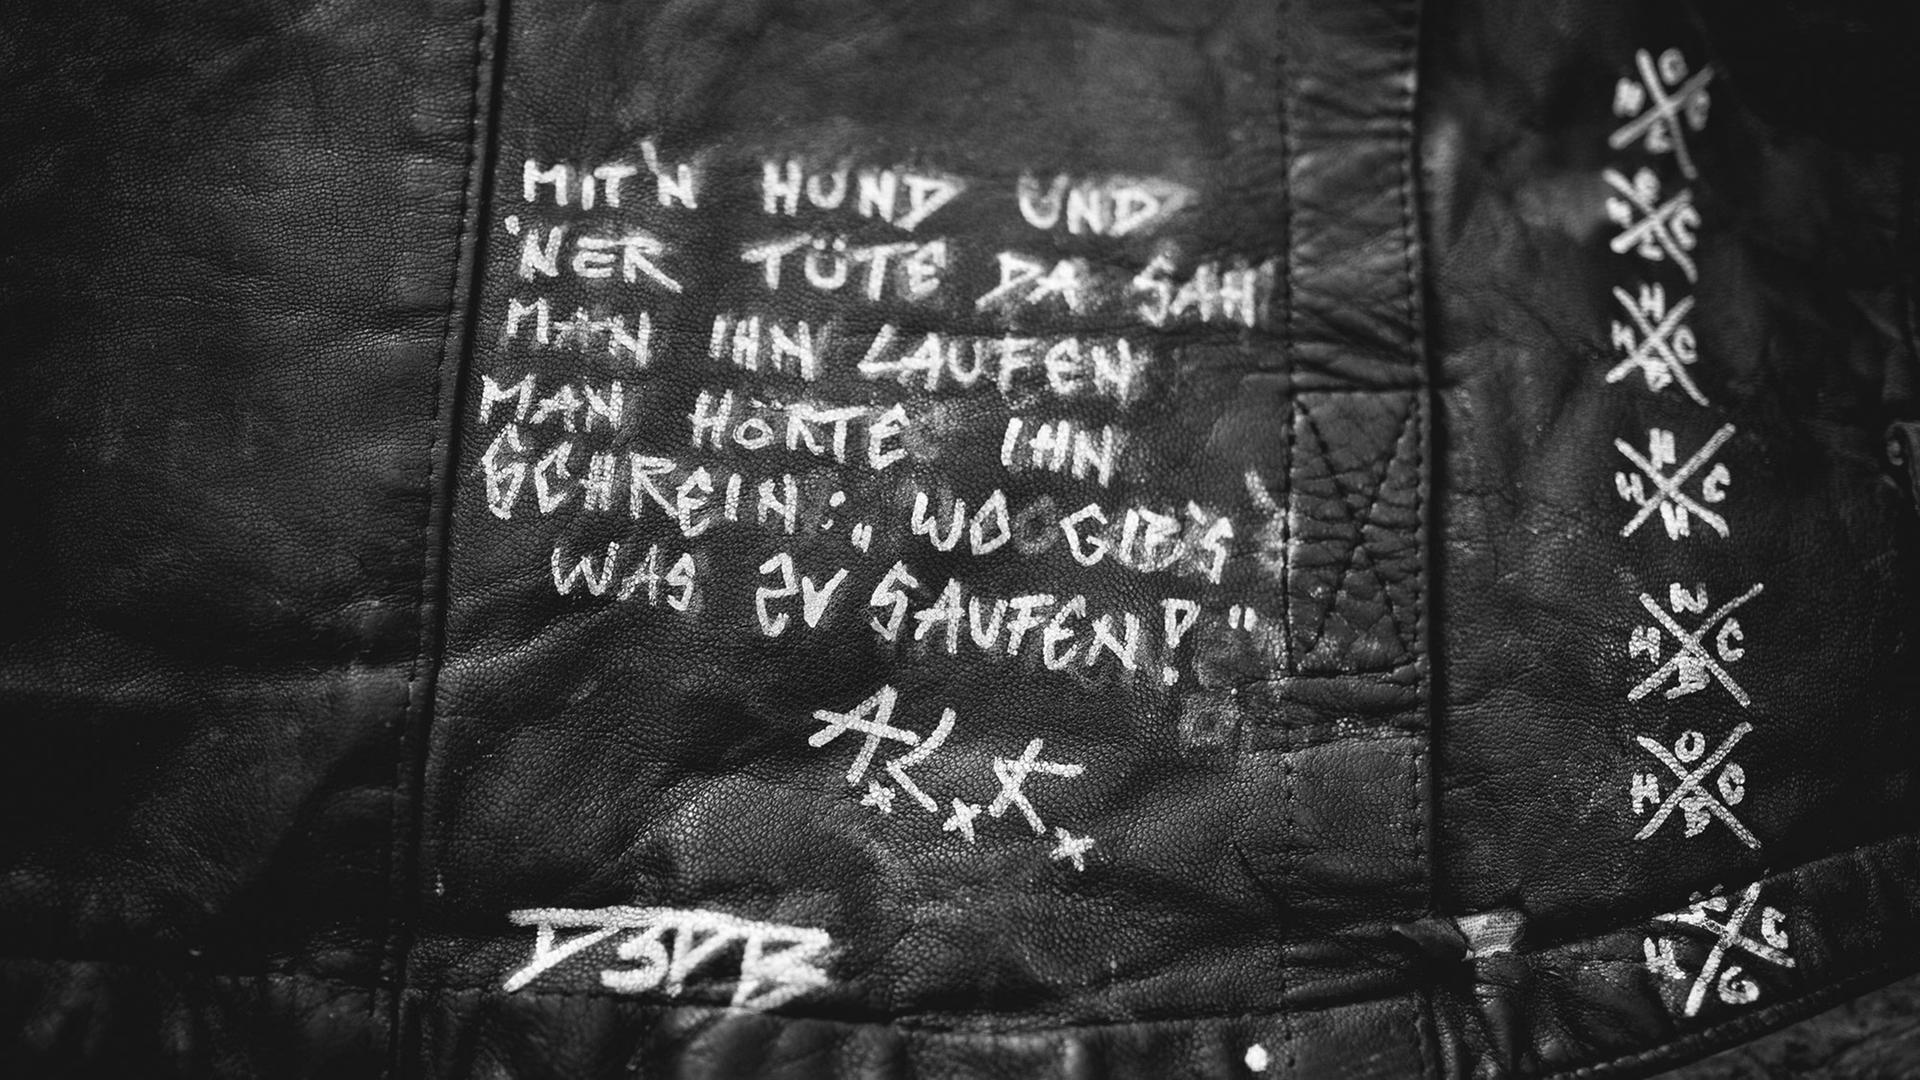 MIT'N HUND UND
'NER TÜTE DA SAH
MAN IHN LAUFEN
MAN HÖRTE IHN
SCHREIN: „WO GIB'S
WAS ZU SAUFEN!"
H
H C
H
N
H C
B
O
H C
B